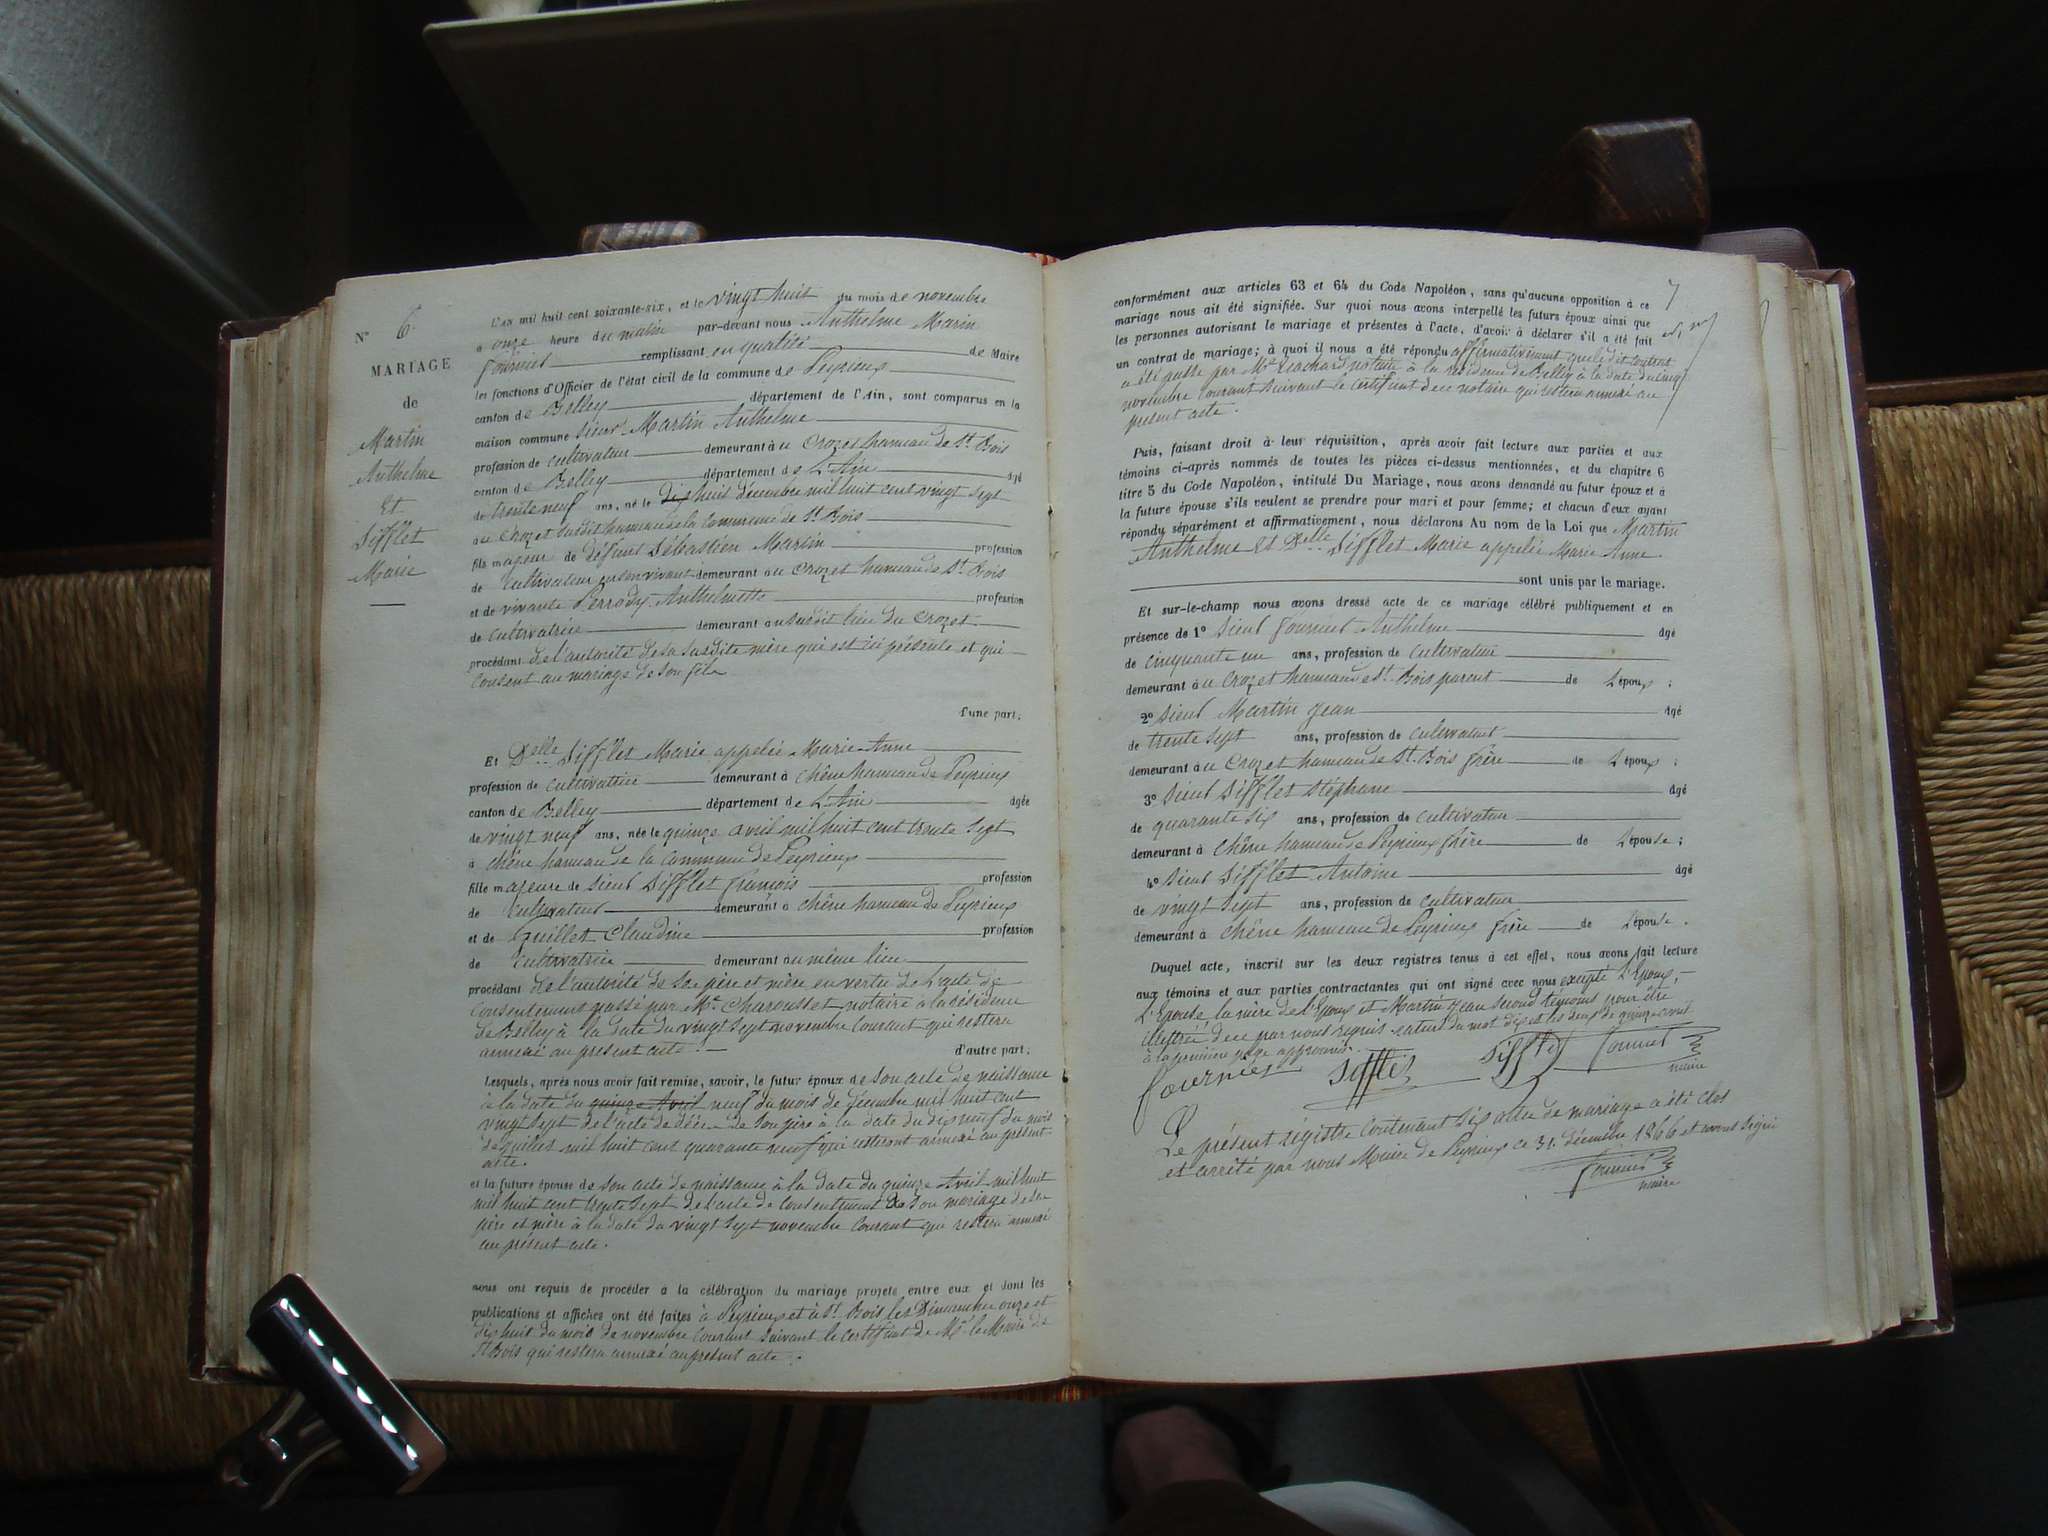 N° 6.
MARIAGE
de
Martin
Anthelme
Et
Sifflet
Marie
L'an mil huit cent soixante-six, et le vingt huit du mois de novembre
à onze heure du matin par-devant nous Anthelme Marin
Fournier remplissant en qualité de Maire
les fonctions d'Officier de l'état civil de la commune de Peyrieux
canton de Belley département de l'Ain, sont comparus en la
maison commune sieur Martin Anthelme
profession de cultivateur demeurant à au Crozet hameau de St. Bois
canton de Belley département de L'Ain âgé
de trente neuf ans, né le dix huit décembre mil huit cent vingt sept
au Crozet susdit hameau de la commune de St. Bois
fils majeur de défunt Sébastien Martin profession
de Cultivateur en son vivant demeurant à au Crozet hameau de St. Bois
et de vivante Perrody Anthelmette profession
de cultivatrice demeurant au susdit lieu du Crozet.
procédant de l'autorité de sa susdite mère qui est ici présente et qui
consent au mariage de son fils
d'une part;
Et Delle Sifflet Marie appelée Marie Anne
profession de cultivatrice demeurant à Chêne hameau de Peyrieux
canton de Belley département de L'Ain âgée
de vingt neuf ans, née le quinze avril mil huit cent trente sept
à Chêne hameau de la commune de Peyrieux
fille majeure de sieur Sifflet françois profession
de Cultivateur demeurant à Chêne hameau de Peyrieux
et de Guillet Claudine profession
de Cultivatrice demeurant au même lieu
procédant de l'autorité de ses père et mère en vertu de l'acte de
consentement passé par Me Charousset notaire à la résidence
de Belley à la date du vingt sept novembre courant qui restera
annexé au présent acte.
d'autre part;
Lesquels, après nous avoir fait remise, savoir, le futur époux de son acte de naissance
à la date du quinze Avril neuf du mois de Décembre mil huit cent
vingt sept de l'acte de décès de son père à la date du dix neuf du mois
de juillet mil huit cent quarante neuf qui resteront annexé au présent
acte.
et la future épouse de son acte de naissance à la date du quinze Avril mil huit
mil huit cent trente sept de l'acte de consentement de son mariage de ses
père et mère à la date du vingt sept novembre courant qui restera annexé
au présent acte.
nous ont requis de procéder à la célébration du mariage projeté entre eux et dont les
publications et affiches ont été faites à Peyrieux et à St. Bois les Dimanches onze et
dix huit du mois de novembre courant suivant le certificat de Mr le Maire de
St Bois qui restera annexé au présent acte.
7
conformément aux articles 63 et 64 du Code Napoléon, sans qu'aucune opposition à ce
mariage nous ait été signifiée. Sur quoi nous avons interpellé les futurs époux ainsi que
les personnes autorisant le mariage et présentes à l'acte, d'avoir à déclarer s'il a été fait
un contrat de mariage; à quoi il nous a été répondu affirmativement que ledit contrat
a été passé par Me notaire à la résidence de Belley à la date du cinq
novembre courant suivant le certificat dudit notaire qui restera annexé au
présent acte.
Puis, faisant droit à leur réquisition, après avoir fait lecture aux parties et aux
témoins ci-après nommés de toutes les pièces ci-dessus mentionnées, et du chapitre 6
titre 5 du Code Napoléon, intitulé Du Mariage, nous avons demandé au futur époux et à
la future épouse s'ils veulent se prendre pour mari et pour femme; et chacun d'eux ayant
répondu séparément et affirmativement, nous déclarons Au nom de la Loi que Martin
Anthelme et Delle Sifflet Marie appelée Marie Anne
sont unis par le mariage.
Et sur-le-champ nous avons dressé acte de ce mariage célébré publiquement et en
présence de 1° sieur Fournier Anthelme âgé
de cinquante un ans, profession de cultivateur
demeurant à au Crozet hameau de St. Bois parent de L'époux ;
2° sieur Martin Jean âgé
de trente sept ans, profession de cultivateur
demeurant à au Crozet hameau de St. Bois frère de L'époux ;
3° sieur Sifflet Stéphane âgé
de quarante six ans, profession de cultivateur
demeurant à Chêne hameau de Peyrieux frère de L'épouse ;
4° sieur Sifflet Antoine âgé
de vingt sept ans, profession de cultivateur
demeurant à Chêne hameau de Peyrieux frère de L'épouse.
Duquel acte, inscrit sur les deux registres tenus à cet effet, nous avons fait lecture
aux témoins et aux parties contractantes qui ont signé avec nous excepté L'Epoux,
L'Epouse la mère de l'Epoux et Martin Jean second témoins pour être
illettrée de ce par nous requis rature du mot dix et les deux de quinze avril
à la première page approuvés.
Fournier Sifflet Sifflet Fournier
maire
Le présent régistre contenant six actes de mariage a été clos
et arrêté par nous Maire de Peyrieux ce 31. décembre 1866 et avons signé
Fournier
maire